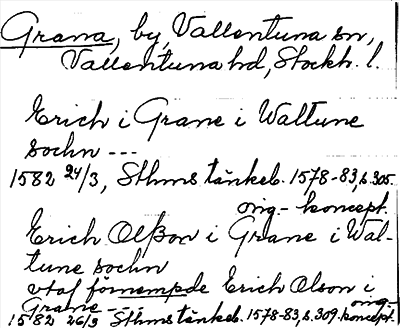 Grana, by, Vallentuna sn,
Vallentuna hd, Stockh. l.
Erich i Grane i Waltune
sochn ---
1582 24/3, Sthms tänkeb. 1578-83, s. 305.
orig.- koncept.
Erich Olßon i Grane i Wal-
tune sochn
vtaf förnempde Erich Olson i
Grane ---
1582 26/3 Sthms tänkeb. 1578-83, s. 309. orig.- koncept.